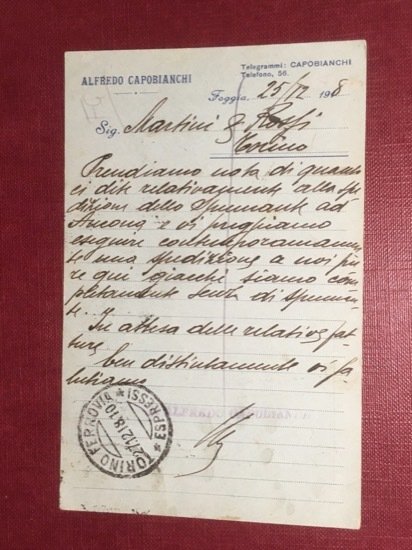 ALFREDO CAPOBIANCHI
Telegrammi: CAPOBIANCHI
Telefono, 56.
Foggia, 25/12 1918
Sig. Martini & Rossi
Torino
Prendiamo nota di quanto
ci dite relativamente alla spe
dizione dello Spumante ad
Ancona e vi preghiamo
eseguire contemporaneamen
te una spedizione a noi pu
re qui giacchè siamo com
pletamente senza di spuman
te.
In attesa delle relative fat
ture,
ben distintamente vi sa
lutiamo
ALFREDO CAPOBIANCHI
TORINO FERROVIA * ESPRESSI *
27.12.18.10